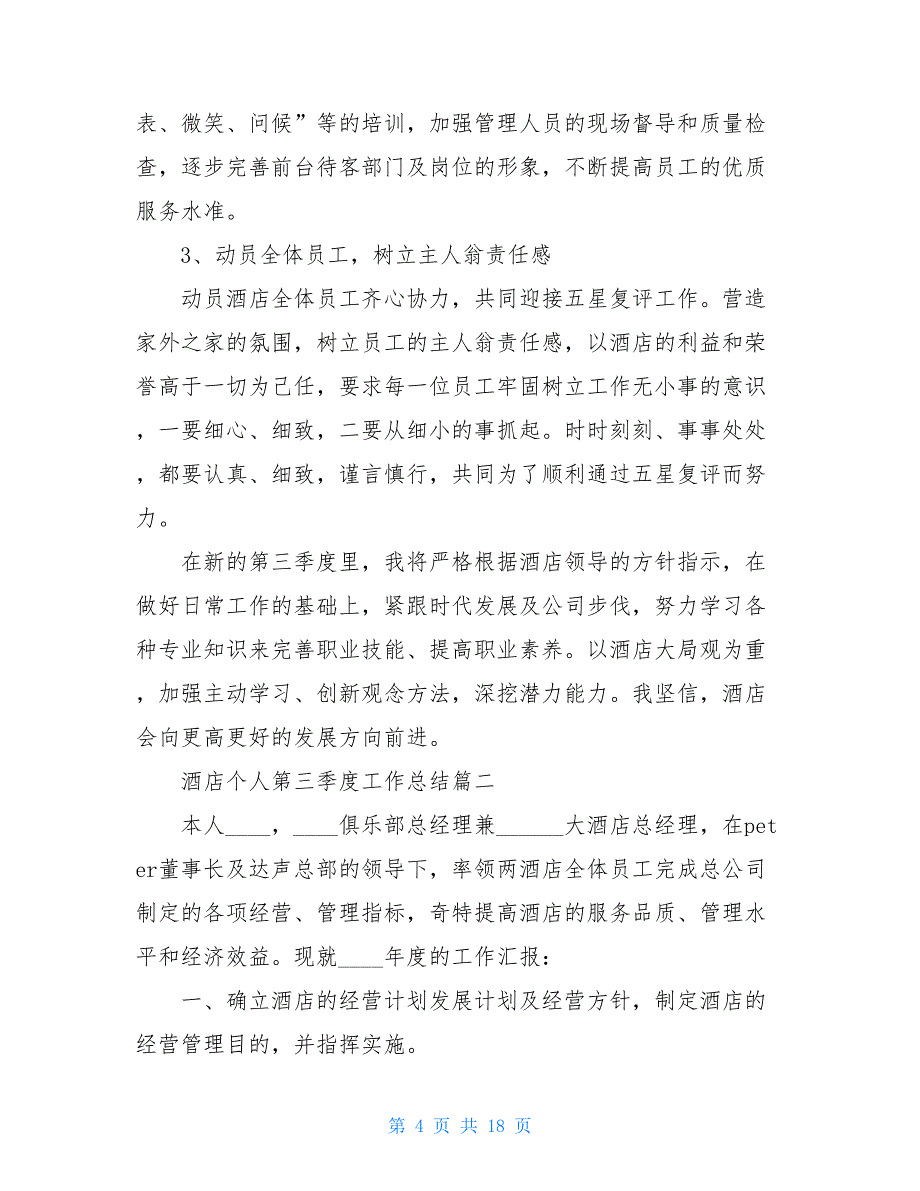 表、微笑、问候”等的培训，加强管理人员的现场督导和质量检
查，逐步完善前台待客部门及岗位的形象，不断提高员工的优质
服务水准。
3、动员全体员工，树立主人翁责任感
动员酒店全体员工齐心协力，共同迎接五星复评工作。营造
家外之家的氛围，树立员工的主人翁责任感，以酒店的利益和荣
誉高于一切为己任，要求每一位员工牢固树立工作无小事的意识
，一要细心、细致，二要从细小的事抓起。时时刻刻、事事处处
，都要认真、细致，谨言慎行，共同为了顺利通过五星复评而努
力。
在新的第三季度里，我将严格根据酒店领导的方针指示，在
做好日常工作的基础上，紧跟时代发展及公司步伐，努力学习各
种专业知识来完善职业技能、提高职业素养。以酒店大局观为重
，加强主动学习、创新观念方法，深挖潜力能力。我坚信，酒店
会向更高更好的发展方向前进。
酒店个人第三季度工作总结篇二
本人____，____俱乐部总经理兼______大酒店总经理，在pet
er董事长及达声总部的领导下，率领两酒店全体员工完成总公司
制定的各项经营、管理指标，奇特提高酒店的服务品质、管理水
平和经济效益。现就____年度的工作汇报：
一、确立酒店的经营计划发展计划及经营方针，制定酒店的
经营管理目的，并指挥实施。
第 4 页 共 18 页